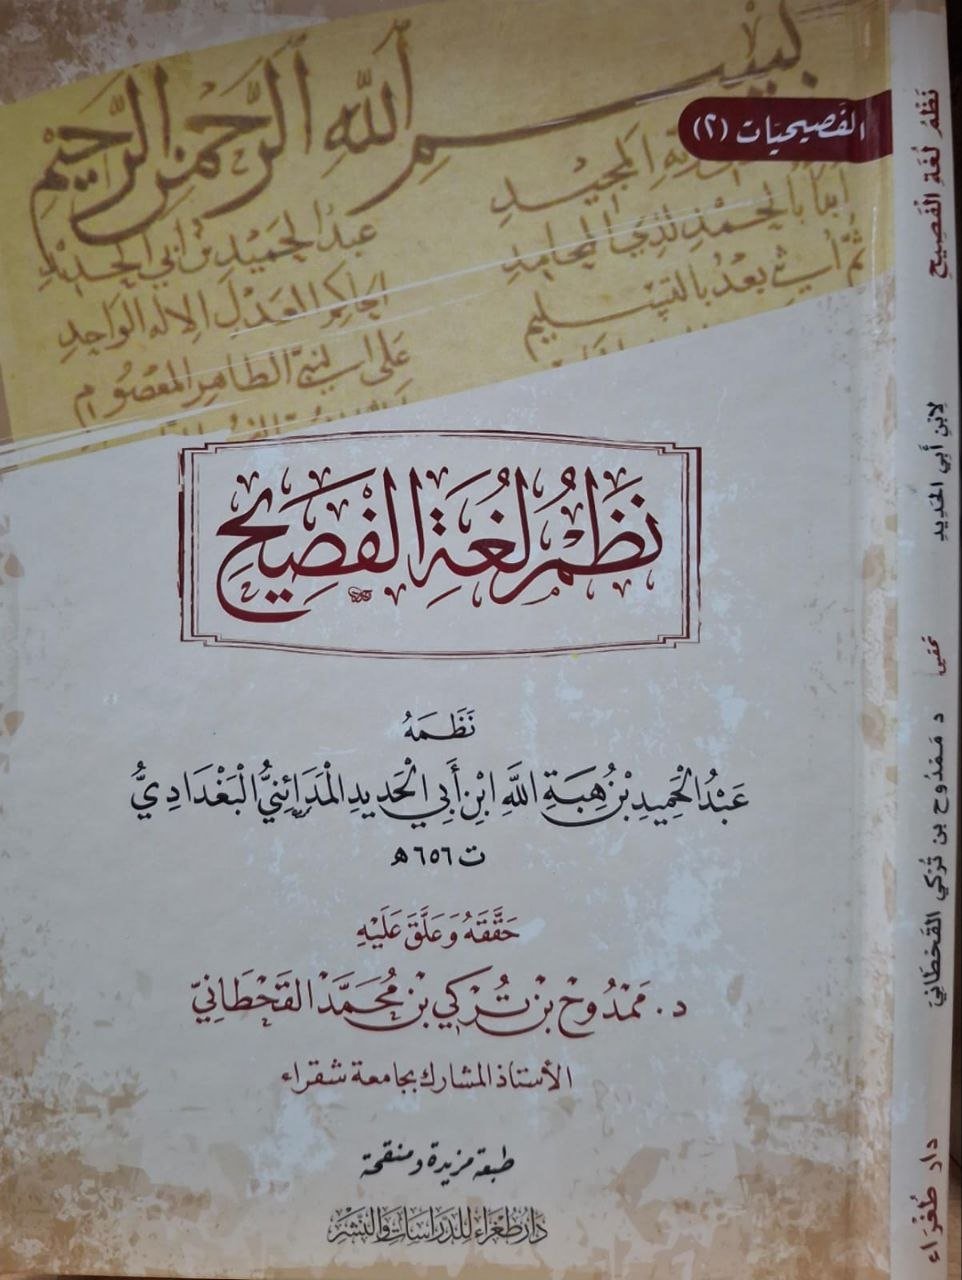 بسم الله الرحمن الرحيم
الفَصِيحيّات (٢)
المجيد
عبد الحميد بن أبي الحديد
بالحمد لذي المحامد
الحاكم العدل الإله الواحد
ثم أثني بعد بالتسليم
على النبي الطاهر المعصوم
نَظْمُ لُغَةِ الْفَصِيحِ
نَظَمَهُ
عَبْدُ الْحَمِيدِ بْنُ هِبَةِ اللَّهِ ابْنِ أَبِي الْحَدِيدِ الْمَدَائِنِيُّ الْبَغْدَادِيُّ
ت ٦٥٦هـ
حَقَّقَهُ وَعَلَّقَ عَلَيْهِ
د. مَمْدُوحُ بْنُ تُرْكِي بْنِ مُحَمَّدٍ الْقَحْطَانِيّ
الأستاذ المشارك بجامعة شقراء
طبعة مزيدة ومنقحة
دَارُ طُغَرَاء لِلدِّرَاسَاتِ وَالنَّشْرِ
نَظْمُ لُغَةِ الْفَصِيحِ
لِابْنِ أَبِي الحَدِيدِ
تحقيق
د مَمْدُوح بن تُرْكي القَحْطَانيّ
دار طُغَرَاء